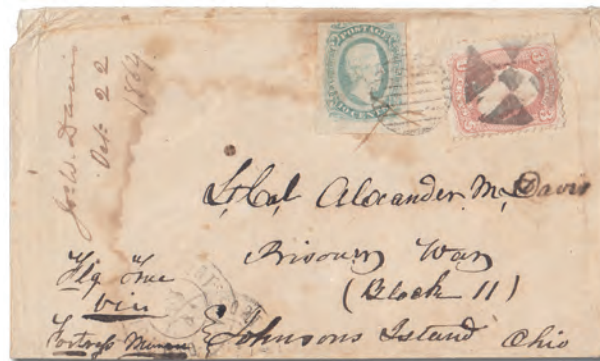 Jos. W. Davis
Oct. 22
1864.
POSTAGE
CENTS
Lt. Col. Alexander M. Davis
Prisoner War
(Block 11)
Johnsons Island Ohio
Flg True
via
Fortress Monroe